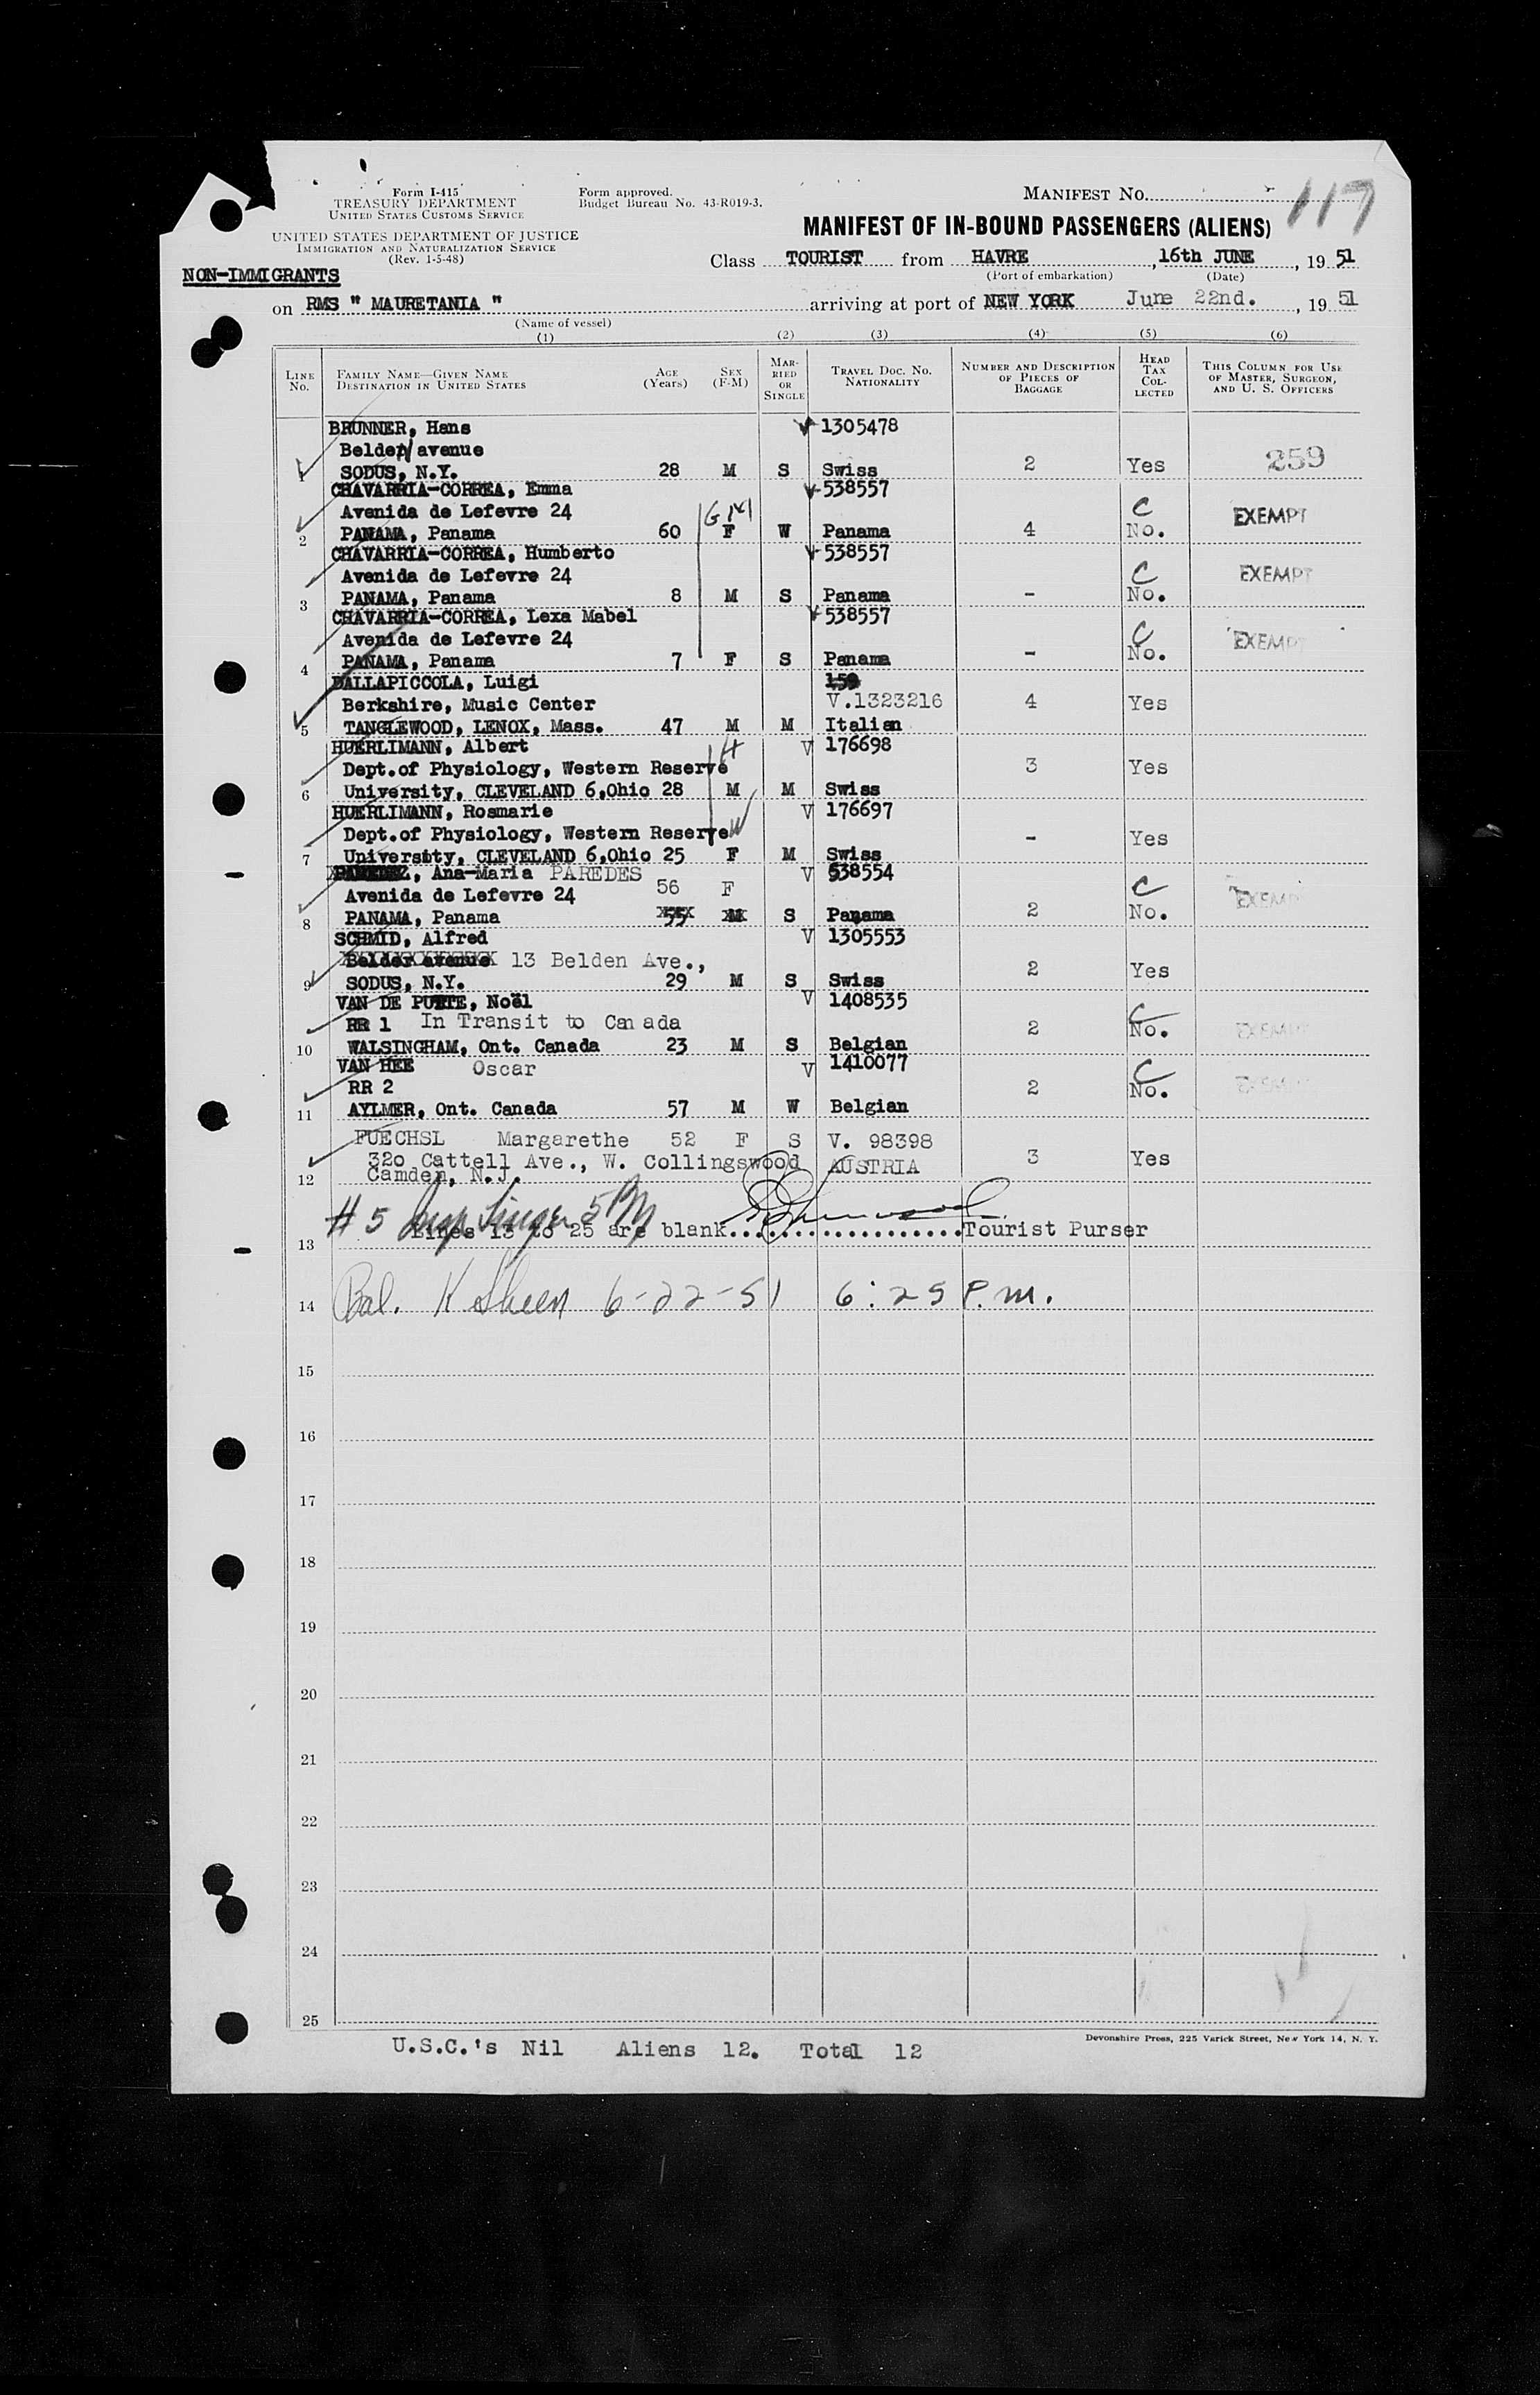 Form I-415
TREASURY DEPARTMENT
UNITED STATES CUSTOMS SERVICE
UNITED STATES DEPARTMENT OF JUSTICE
IMMIGRATION AND NATURALIZATION SERVICE
(Rev. 1-5-48)
Form approved.
Budget Bureau No. 43-R019-3.
MANIFEST NO. 117
MANIFEST OF IN-BOUND PASSENGERS (ALIENS)
NON-IMMIGRANTS
Class TOURIST from HAVRE, 16th JUNE, 1951
(Port of embarkation) (Date)
on RMS " MAURETANIA " arriving at port of NEW YORK June 22nd., 1951
(Name of vessel)
(1) (2) (3) (4) (5) (6)
LINE NO. FAMILY NAME—GIVEN NAME DESTINATION IN UNITED STATES AGE (Years) SEX (F-M) MARRIED OR SINGLE TRAVEL DOC. NO. NATIONALITY NUMBER AND DESCRIPTION OF PIECES OF BAGGAGE HEAD TAX COLLECTED THIS COLUMN FOR USE OF MASTER, SURGEON, AND U. S. OFFICERS
BRUNNER, Hans 1305478
Belden avenue
1 SODUS, N.Y. 28 M S Swiss 2 Yes 259
CHAVARRIA-CORREA, Emma 538557
Avenida de Lefevre 24 GM C EXEMPT
2 PANAMA, Panama 60 F W Panama 4 No.
CHAVARRIA-CORREA, Humberto 538557
Avenida de Lefevre 24 C EXEMPT
3 PANAMA, Panama 8 M S Panama - No.
CHAVARRIA-CORREA, Lexa Mabel 538557
Avenida de Lefevre 24 C EXEMPT
4 PANAMA, Panama 7 F S Panama - No.
DALLAPICCOLA, Luigi 159
Berkshire, Music Center V.1323216 4 Yes
5 TANGLEWOOD, LENOX, Mass. 47 M M Italian
HUERLIMANN, Albert H V 176698
Dept.of Physiology, Western Reserve 3 Yes
6 University, CLEVELAND 6,Ohio 28 M M Swiss
HUERLIMANN, Rosmarie V 176697
Dept.of Physiology, Western Reserve W - Yes
7 University, CLEVELAND 6,Ohio 25 F M Swiss
PAREDEZ, Ana-Maria PAREDES V 538554
Avenida de Lefevre 24 56 F C EXEMPT
8 PANAMA, Panama 55 M S Panama 2 No.
SCHMID, Alfred V 1305553
Belder avenue 13 Belden Ave., 2 Yes
9 SODUS, N.Y. 29 M S Swiss
VAN DE PUTTE, Noël V 1408535
RR 1 In Transit to Canada 2 C No. EXEMPT
10 WALSINGHAM, Ont. Canada 23 M S Belgian
VAN HEE Oscar V 1410077
RR 2 2 C No. EXEMPT
11 AYLMER, Ont. Canada 57 M W Belgian
FUECHSL Margarethe 52 F S V. 98398
320 Cattell Ave., W. Collingswood AUSTRIA 3 Yes
12 Camden, N.J.
# 5 Insp Singer 5 PM
13 Lines 13 to 25 are blank..................Tourist Purser
14 Bal. K Sheen 6-22-51 6:25 P.m.
15
16
17
18
19
20
21
22
23
24
25
U.S.C.'s Nil Aliens 12. Total 12
Devonshire Press, 225 Varick Street, New York 14, N. Y.